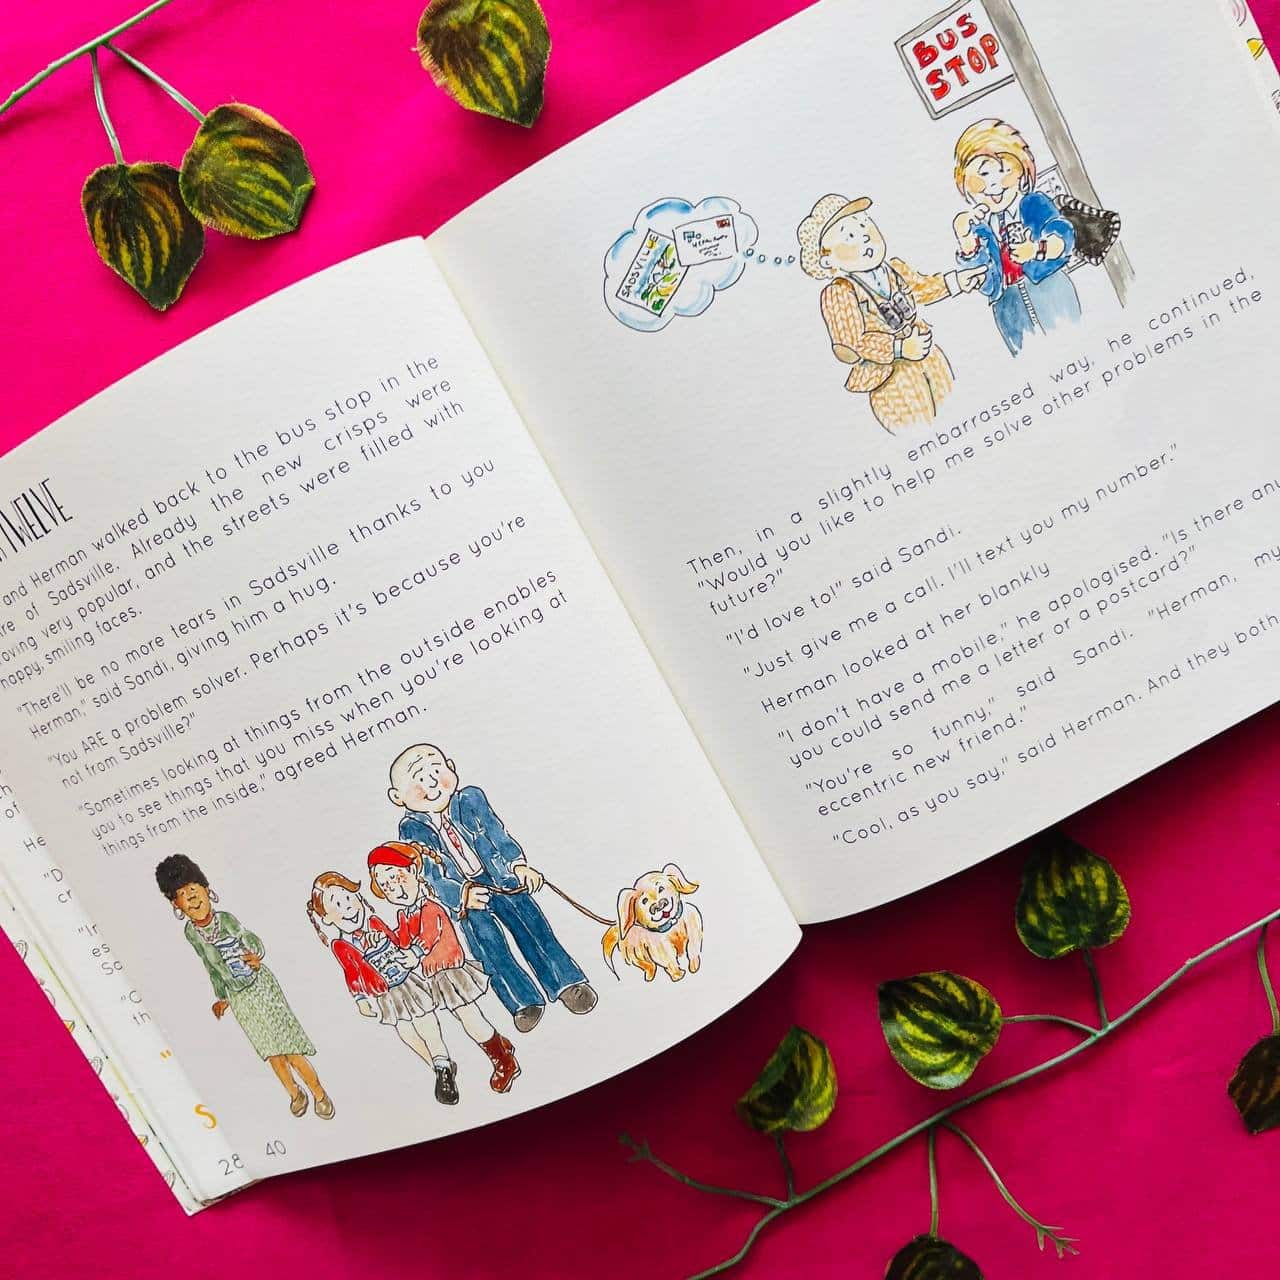 TWELVE
and Herman walked back to the bus stop in the
re of Sadsville. Already the new crisps were
oving very popular, and the streets were filled with
happy, smiling faces.
"There'll be no more tears in Sadsville thanks to you
Herman," said Sandi, giving him a hug.
"You ARE a problem solver. Perhaps it's because you're
not from Sadsville?"
"Sometimes looking at things from the outside enables
you to see things that you miss when you're looking at
things from the inside," agreed Herman.
28
40
BUS
STOP
SADSVILLE
Then, in a slightly embarrassed way, he continued,
"Would you like to help me solve other problems in the
future?"
"I'd love to!" said Sandi.
"Just give me a call. I'll text you my number."
Herman looked at her blankly
"I don't have a mobile," he apologised. "Is there any
you could send me a letter or a postcard?"
"You're so funny," said Sandi. "Herman, my
eccentric new friend."
"Cool, as you say," said Herman. And they both